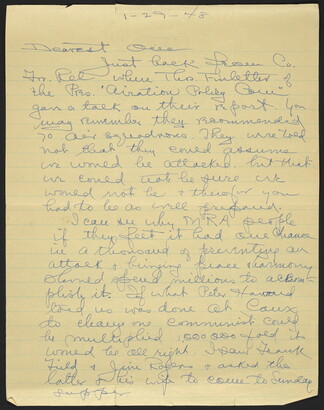 1-29-48
Dearest One
Just back from Co.
For. Rel. when Thos. Finletter of
the Pres. "Aviation Policy Com"
gave a talk on their report. You
may remember they recommended
70 air squadrons. They were told
not that they could assume
we would be attacked but that
we could not be sure we
would not be & therefor you
had to be as well prepared.
I can see why MRA people
if they feel it had one chance
in a thousand of preventing an
attack & bringing peace & harmony
planned spend millions to accom-
plish it. If what Peter Howard
told us was done at Caux
to change one communist could
be multiplied 100,000 fold it
would be all right. I saw Frank
Field & Jim & asked the
latter & his wife to come to Sunday
supper